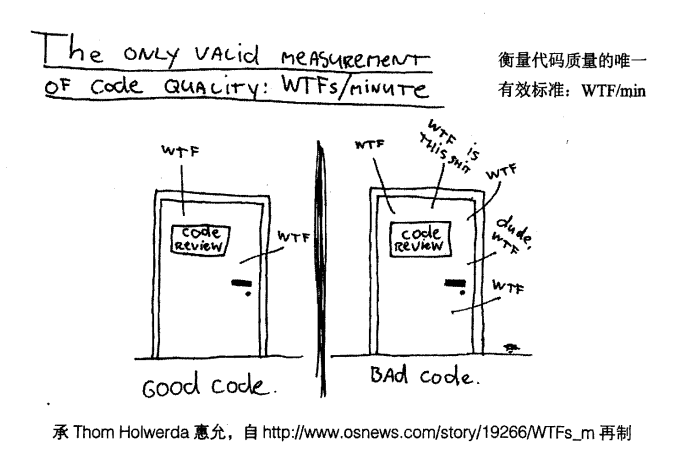 The ONLY VALID MEASUREMENT
OF Code QUALITY: WTFs/MINUTE
衡量代码质量的唯一
有效标准：WTF/min
WTF
Code
REVIEW
WTF
Good code.
WTF
WTF IS
THIS SHIT
WTF
Code
REVIEW
dude,
WTF
WTF
BAd code.
承 Thom Holwerda 惠允，自 http://www.osnews.com/story/19266/WTFs_m 再制